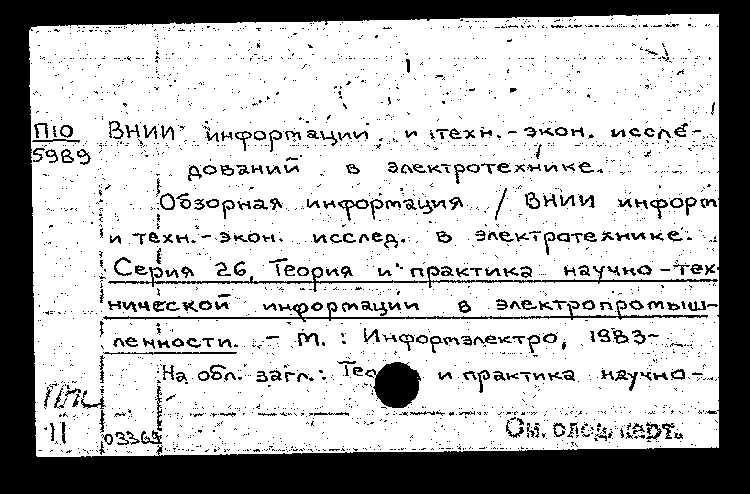 П10
5989
ВНИИ информации и техн.-экон. иссле-
дований в электротехнике.
Обзорная информация / ВНИИ информ
и техн.-экон. исслед. в электротехнике.
Серия 26, Теория и практика научно-тех-
нической информации в электропромыш-
ленности. - М. : Информэлектро, 1983-
На обл. загл.: Тео и практика научно-
11
03369
См. след. карт.